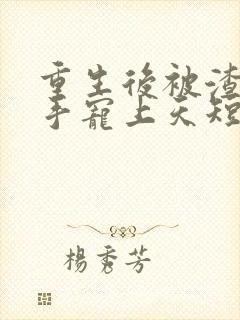 重生後被渣
手寵上天短
楊秀芳